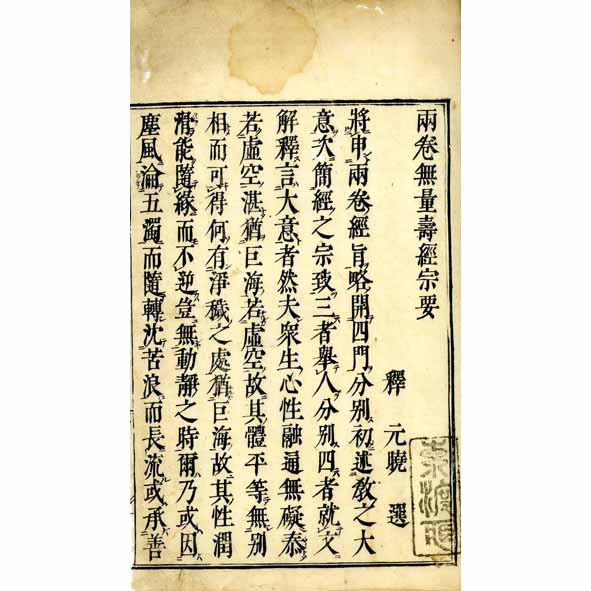 兩卷無量壽經宗要
釋 元曉 選
將申兩卷經旨略開四門分別初述敎之大
意次簡經之宗致三者擧人分別四者就文
解釋言大意者然夫衆生心性融通無礙泰
若虛空湛猶巨海若虛空故其體平等無別
相而可得何有淨穢之處猶巨海故其性潤
滑能隨緣而不逆豈無動靜之時爾乃或因
塵風淪五濁而隨轉沈苦浪而長流或承善